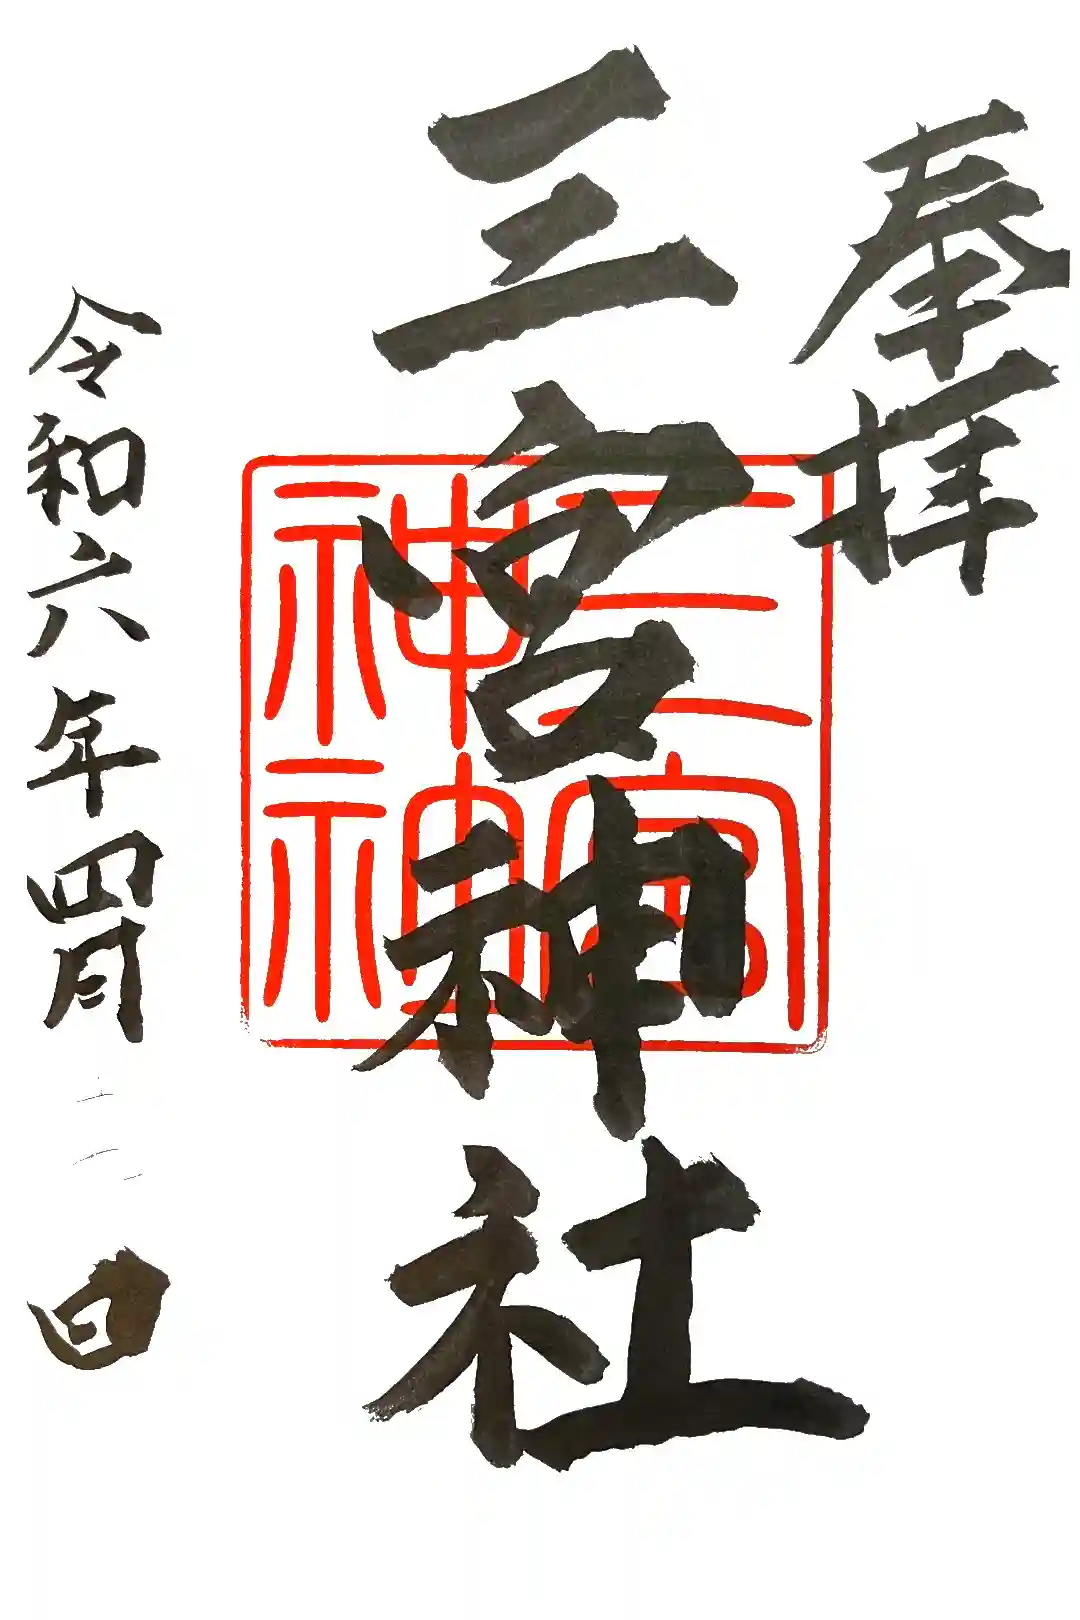 奉拝
三宮神社
三宮神社神璽
令和六年四月 日